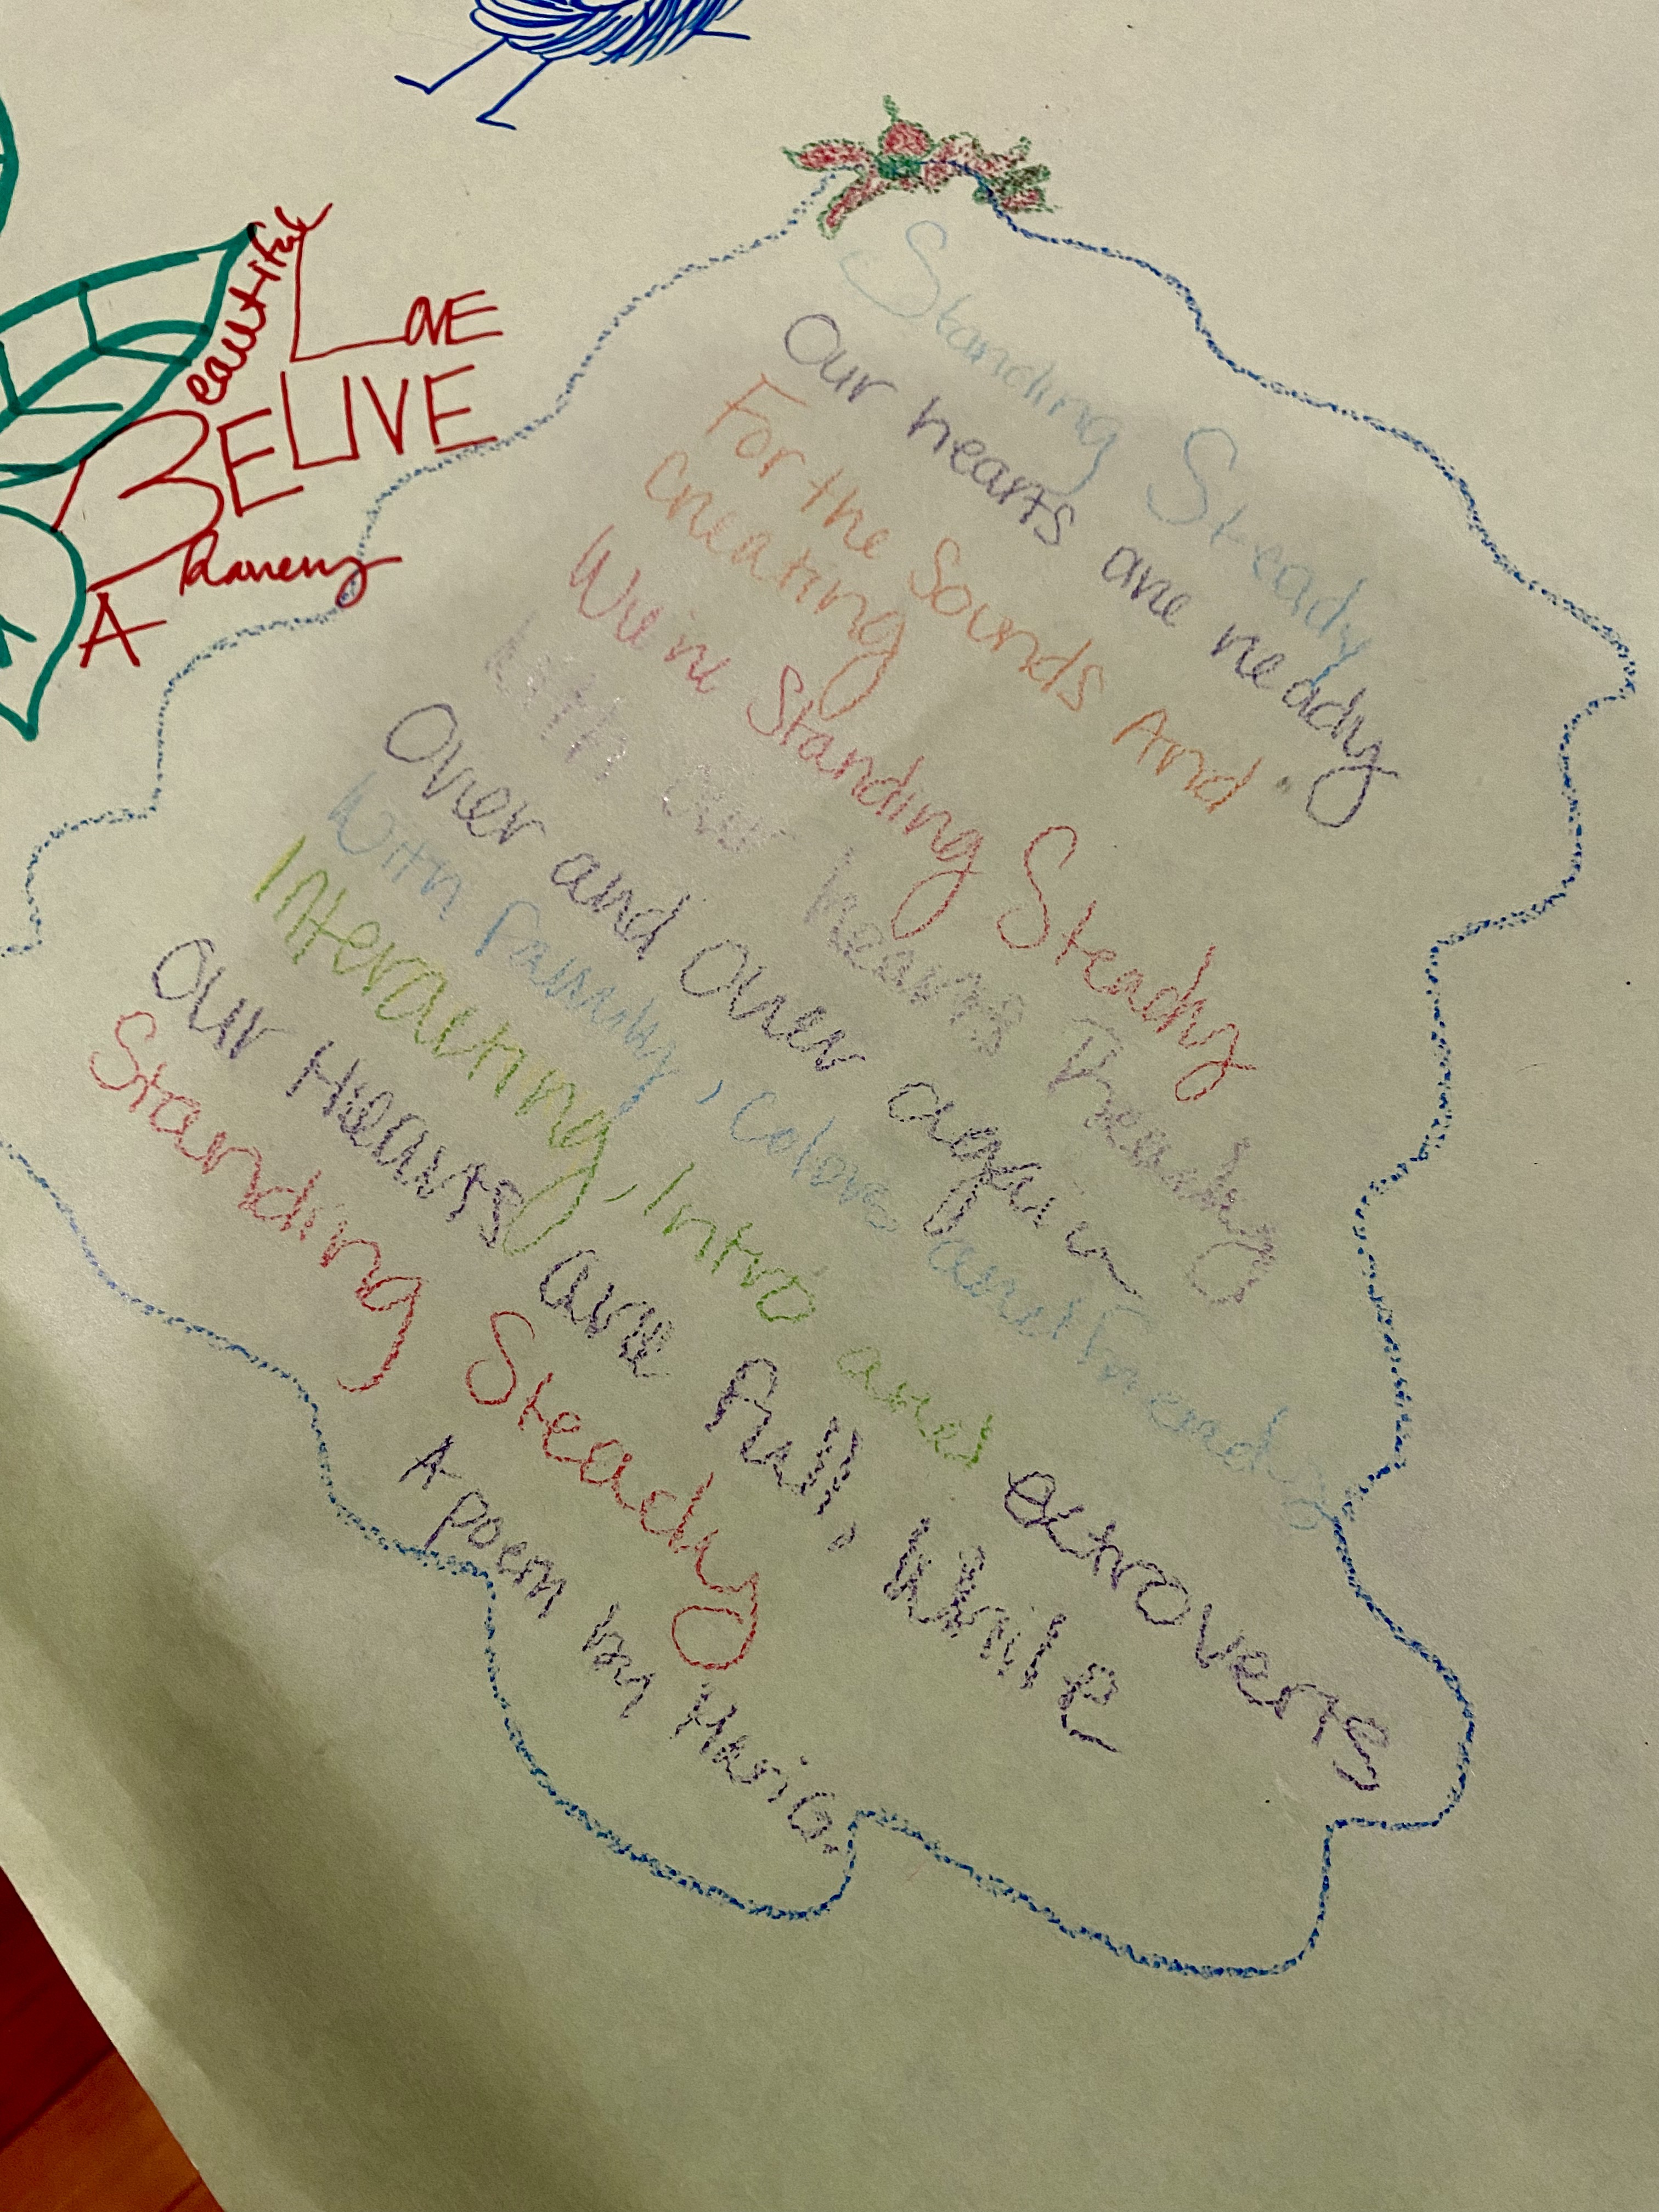 eautiful
LOVE
BELIVE
A
Standing Steady
Our hearts are ready
For the Sounds And
creating
We're Standing Steady
With our hearts Ready
Over and Over again
With family, Colors and Friends
Interacting, Intro and extroverts
Our Hearts are full, While
Standing Steady
A poem by Maria.